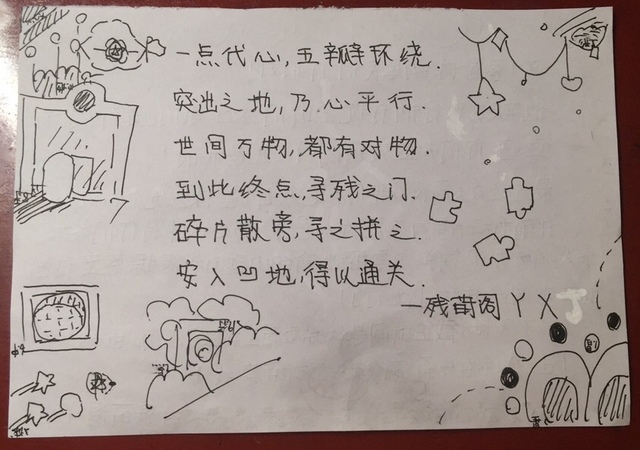 一点代心,五瓣环绕.
突出之地,乃心平行.
世间万物,都有对物.
到此终点,寻残之门.
碎片散旁,寻之拼之.
安入凹地,得以通关.
YX